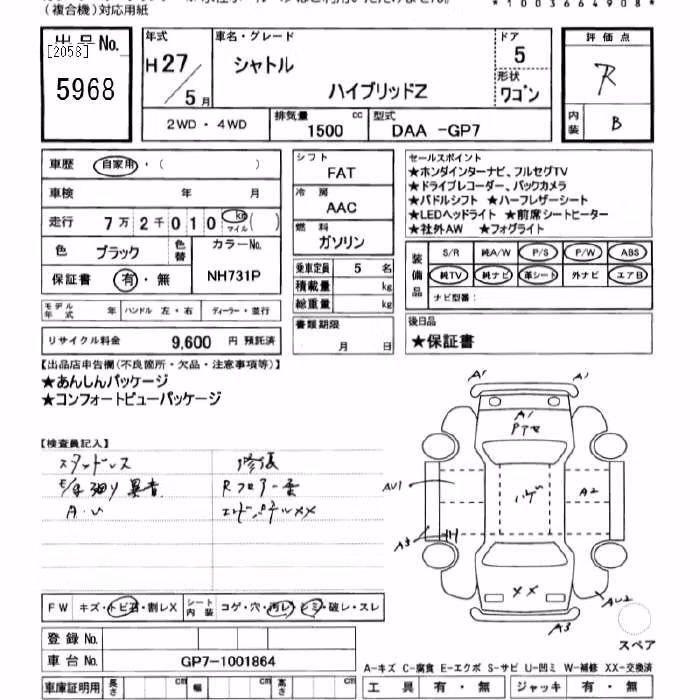 (複合機)対応用紙
*1003664908*
出品No.
[2058]
5968
年式
H27/5月
車名・グレード
シャトル
ハイブリッドZ
ドア
5
形状
ワゴン
評価点
R
内装
B
2WD・4WD
排気量
1500 cc
型式
DAA -GP7
車歴 自家用・( )
車検 年 月
走行 7万2千010 km マイル ( )
色 ブラック
色替
カラーNo.
NH731P
保証書 有・無
モデル年式 年 ハンドル 左・右 ディーラー・並行
リサイクル料金 9,600 円 預託済
シフト
FAT
冷房
AAC
燃料
ガソリン
乗車定員 5 名
積載量 kg
総重量 kg
書類期限
月 日
セールスポイント
★ホンダインターナビ、フルセグTV
★ドライブレコーダー、バックカメラ
★パドルシフト ★ハーフレザーシート
★LEDヘッドライト ★前席シートヒーター
★社外AW ★フォグライト
装備品
S/R 純A/W P/S P/W ABS
純TV 純ナビ 革シート 外ナビ エアB
ナビ型番:
後日品
★保証書
【出品店申告欄(不良箇所・欠品・注意事項等)】
★あんしんパッケージ
★コンフォートビューパッケージ
【検査員記入】
スタッドレス
異音
A・U
修復
Rフロアー
エンドパネルXX
A1
A1
A1
AU1
A2
A3
XX
AU2
A3
スペア
FW キズ・トビ石・割レX
シート内装 コゲ・穴・汚レ・シミ・破レ・スレ
登録No.
車台No. GP7-1001864
車庫証明用 長さ cm 幅 cm 高さ cm
A-キズ C-腐食 E-エクボ S-サビ U-凹ミ W-補修 XX-交換済
工具 有・無 ジャッキ 有・無